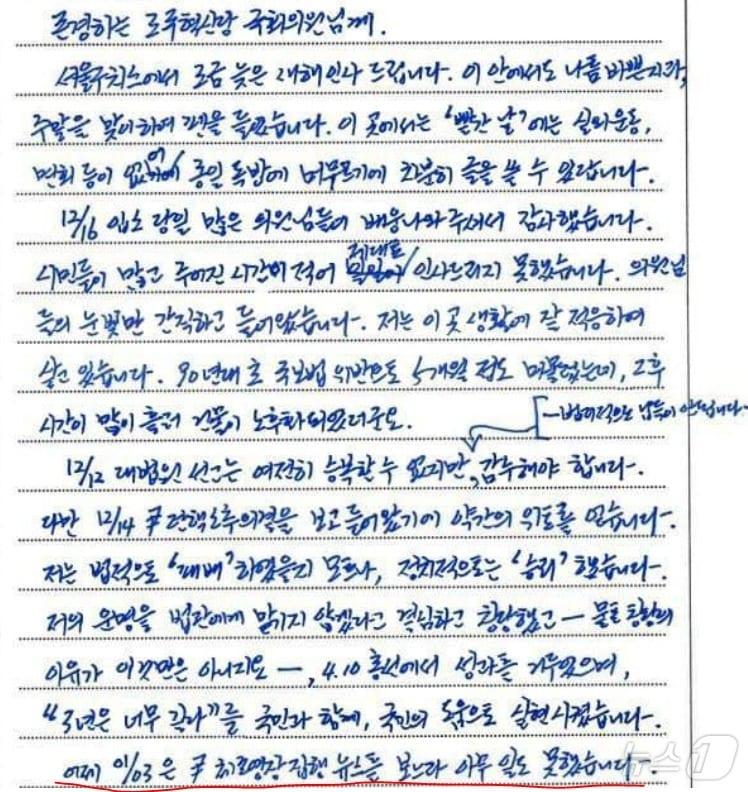 존경하는 조국혁신당 국회의원님께.
서울구치소에서 조금 늦은 새해인사 드립니다. 이 안에서도 나름 바쁜지라,
주말을 맞이하여 펜을 들었습니다. 이 곳에서는 '빨간 날'에는 실외운동,
면회 등이 없어 종일 독방에 머무르기에 차분히 글을 쓸 수 있답니다.
12/16 입소 당일 많은 의원님들이 배웅나와주셔서 감사했습니다.
시민들이 많고 주어진 시간이 적어 제대로 인사드리지 못했습니다. 의원님
들의 눈빛만 간직하고 들어왔습니다. 저는 이 곳 생활에 잘 적응하여
살고 있습니다. 90년대 초 국보법 위반으로 5개월 정도 머물렀는데, 그 후
시간이 많이 흘러 건물이 노후화되었더군요.
— 법리적으로 납득이 안됩니다 —
12/12 대법원 선고는 여전히 승복할 수 없지만, 감수해야 합니다.
다만 12/14 尹 탄핵소추의결을 보고 들어왔기에 약간의 위로를 얻습니다.
저는 법적으로 '패배'하였을지 모르나, 정치적으로는 '승리'했습니다.
저의 운명을 법관에게 맡기지 않겠다고 결심하고 창당했고 — 물론 창당의
이유가 이것만은 아니지요 —, 4.10 총선에서 성과를 거두었으며,
"3년은 너무 길다"를 국민과 함께, 국민의 도움으로 실현시켰습니다.
어제 01/03은 尹 체포영장 집행 뉴스를 보느라 아무 일도 못했습니다.
뉴스1